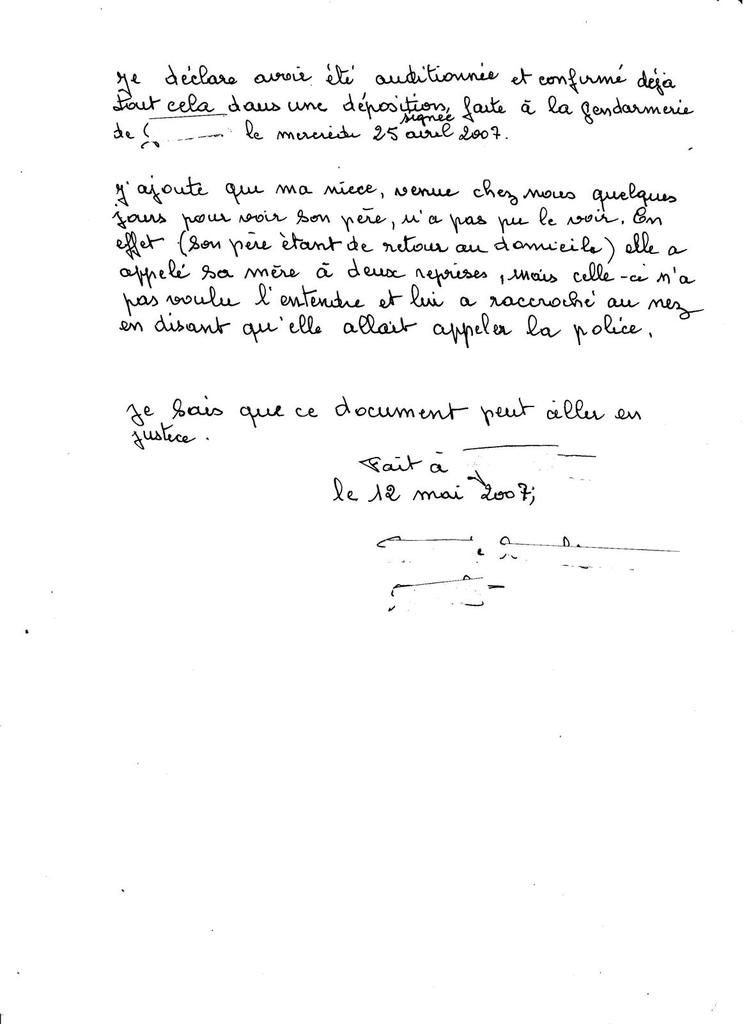 Je déclare avoir été auditionnée et confirmé déjà
tout cela dans une déposition, signée faite à la gendarmerie
de le mercredi 25 avril 2007.
J'ajoute que ma niece, venue chez nous quelques
jours pour voir son père, n'a pas pu le voir. En
effet (son père étant de retour au domicile) elle a
appelé sa mère à deux reprises, mais celle-ci n'a
pas voulu l'entendre et lui a raccroché au nez
en disant qu'elle allait appeler la police.
Je sais que ce document peut aller en
justice.
Fait à
le 12 mai 2007;